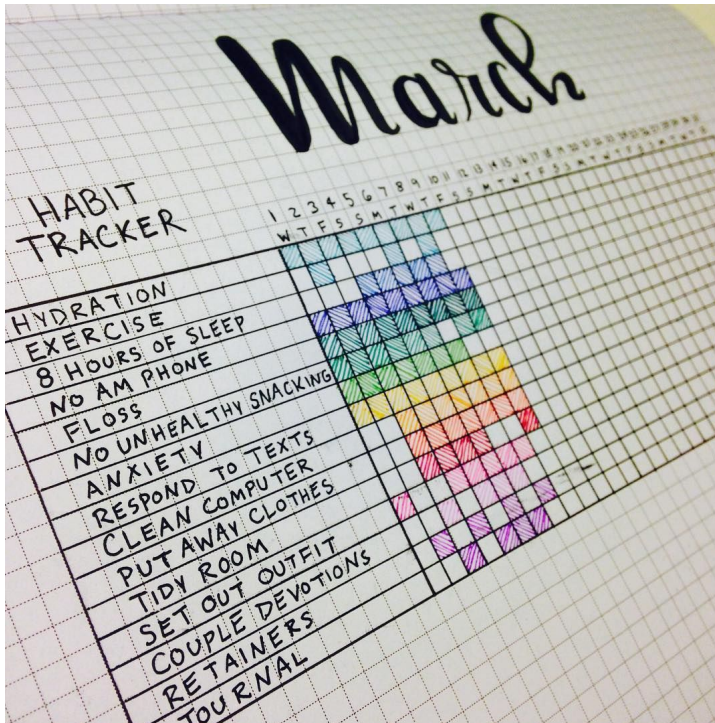 March
HABIT
TRACKER
1 2 3 4 5 6 7 8 9 10 11 12 13 14 15 16 17 18
W T F S S M T W T F S S M T W T F S S M T W T F S
HYDRATION
EXERCISE
8 HOURS OF SLEEP
NO AM PHONE
FLOSS
NO UNHEALTHY SNACKING
ANXIETY
RESPOND TO TEXTS
CLEAN COMPUTER
PUT AWAY CLOTHES
TIDY ROOM
SET OUT OUTFIT
COUPLE DEVOTIONS
RETAINERS
JOURNAL